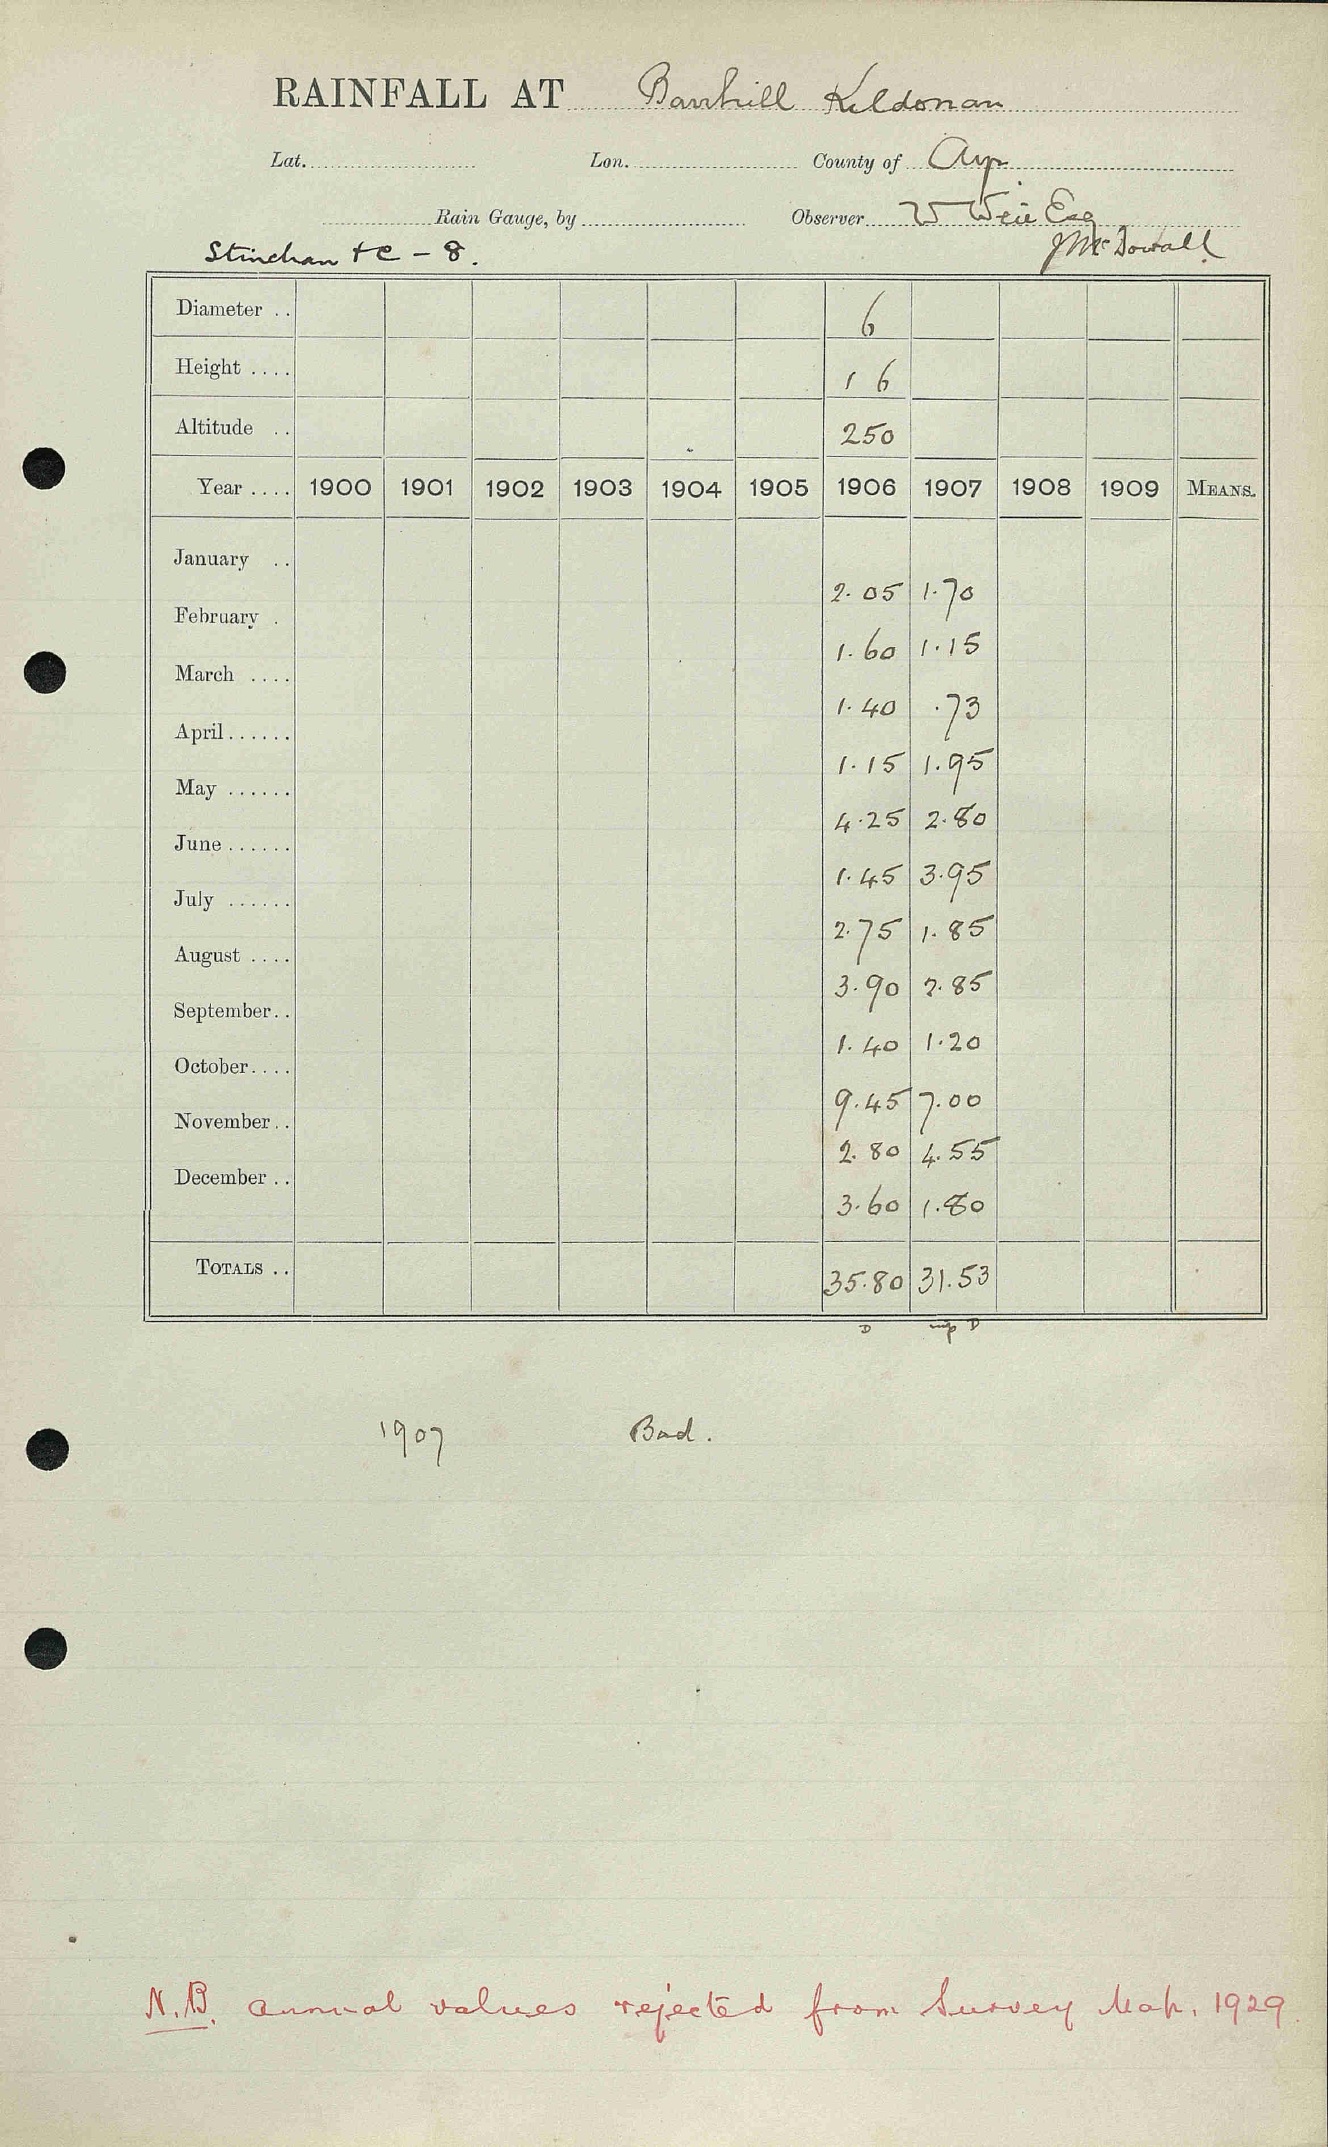 RAINFALL AT Barrhill Kildonan
Lat. Lon. County of Ayr
Rain Gauge, by Observer W Weir Esq
J McDowall
Stinchar &c - 8.
Diameter .. 6
Height .... 1 6
Altitude .. 250
Year .... 1900 1901 1902 1903 1904 1905 1906 1907 1908 1909 MEANS.
January .. 2.05 1.70
February . 1.60 1.15
March .... 1.40 .73
April ...... 1.15 1.95
May ...... 4.25 2.80
June ...... 1.45 3.95
July ...... 2.75 1.85
August .... 3.90 2.85
September.. 1.40 1.20
October.... 9.45 7.00
November.. 2.80 4.55
December .. 3.60 1.80
TOTALS .. 35.80 31.53
D D
1907 Bad.
N.B. annual values rejected from Survey Map, 1929.